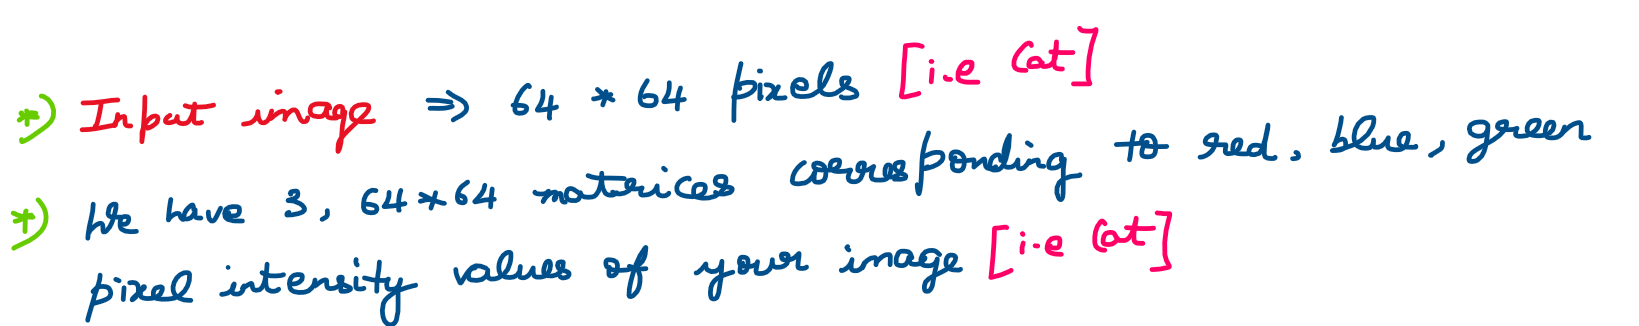 *) Input image ⇒ 64 * 64 pixels [i.e Cat]
*) We have 3, 64*64 matrices corresponding to red, blue, green
pixel intensity values of your image [i.e Cat]